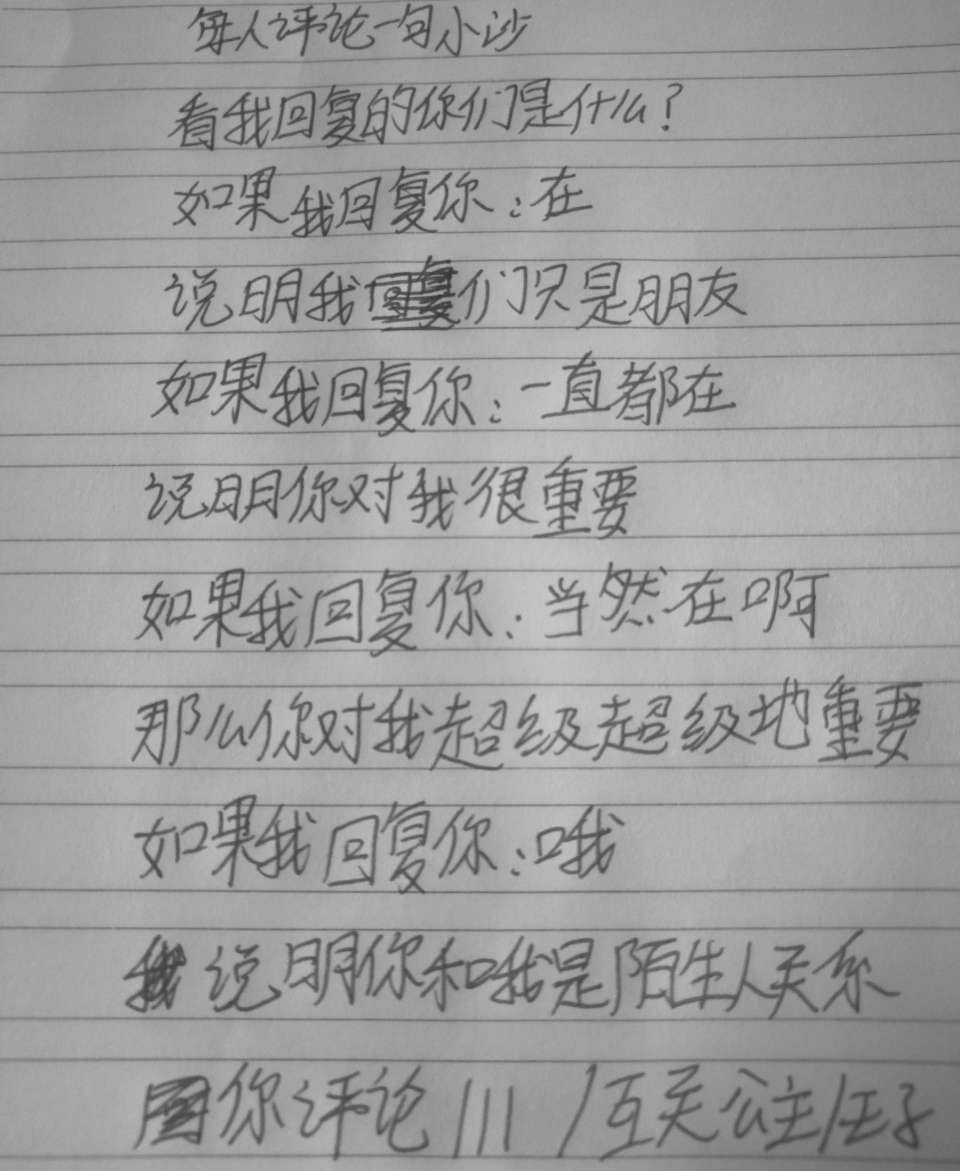 每人评论一句小沙
看我回复的你们是什么?
如果我回复你:在
说明我们只是朋友
如果我回复你:一直都在
说明你对我很重要
如果我回复你:当然在啊
那么你对我超级超级地重要
如果我回复你:哦
说明你和我是陌生人关系
你评论111/互关公主/王子